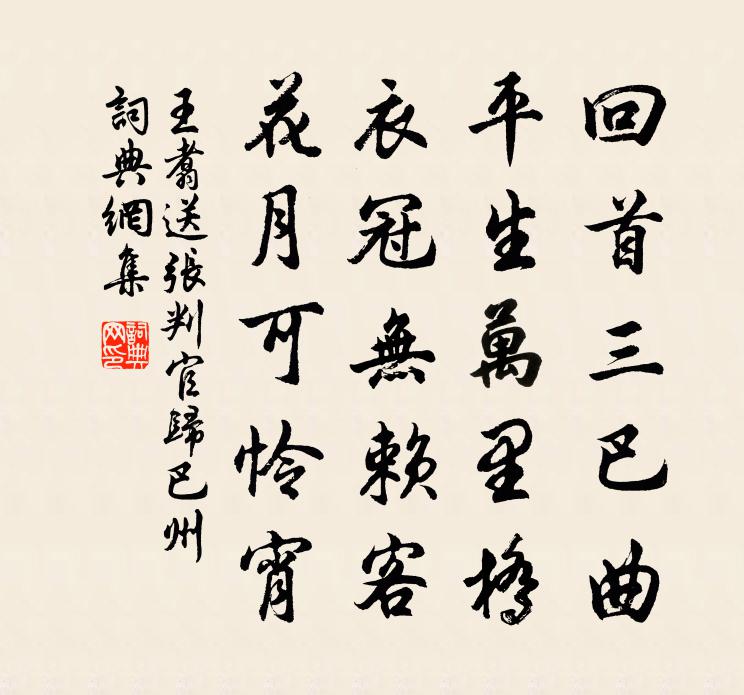 回首三巴曲
平生萬里橋
衣冠無賴客
花月可憐宵
王翥送張判官歸巴州
詞典網集
詞典網印